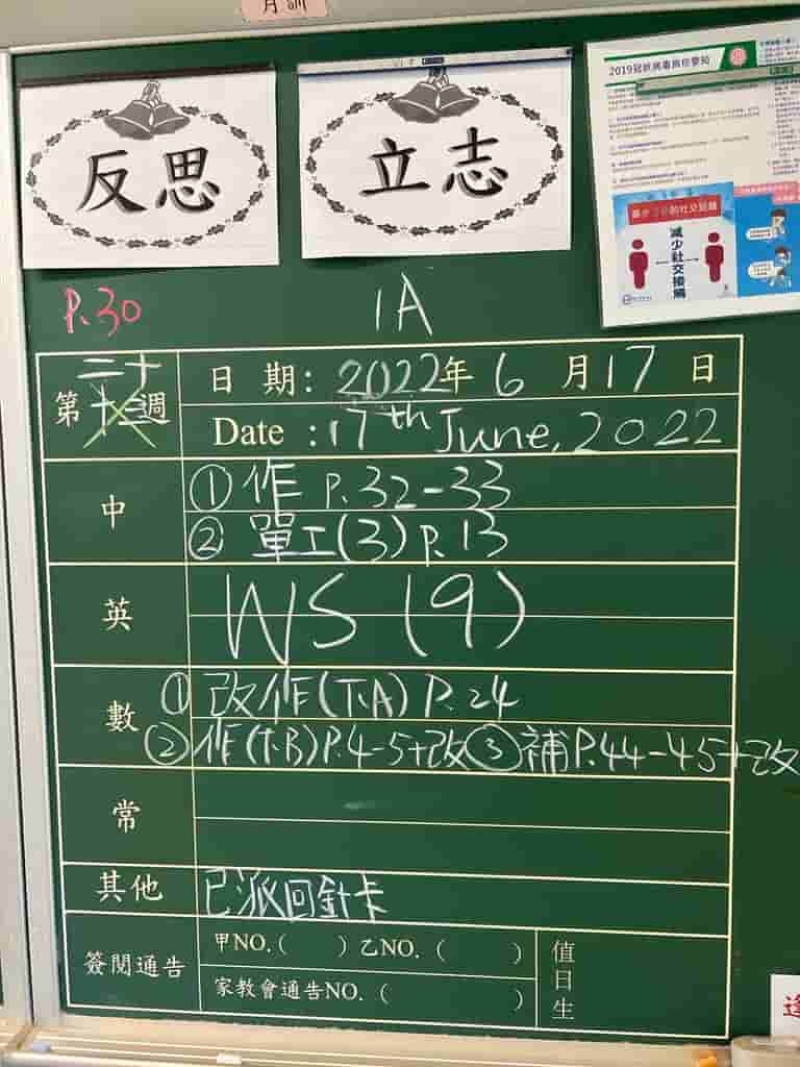 月訓
反思
立志
減少社交接觸
P.30
1A
第二十週
日 期：2022年 6 月17 日
Date :17th June, 2022
中
① 作 P.32-33
② 單工(3) P.13
英
WS (9)
數
① 改作(T.A) P.24
② 作(T.B)P.4-5+改 ③ 補P.44-45+改
常
其他
已派回針卡
簽閱通告
甲NO.( ) 乙NO. ( )
家教會通告NO. ( )
值日生